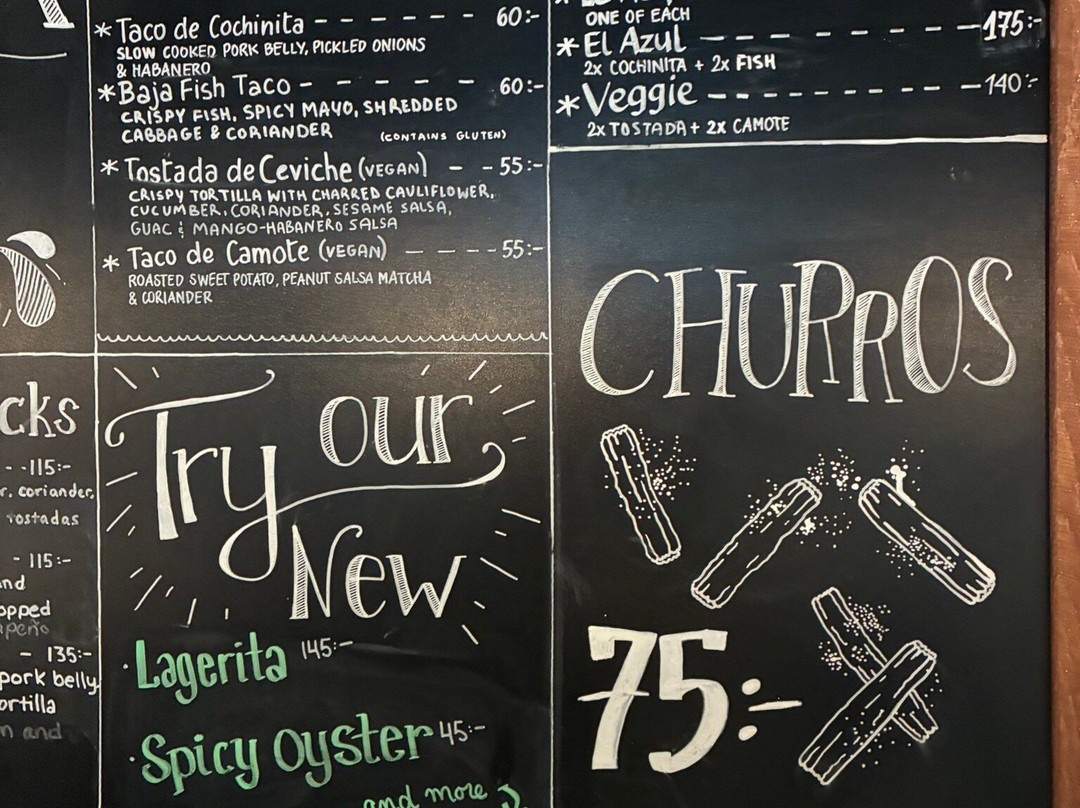 * Taco de Cochinita - - - - - - 60:-
SLOW COOKED PORK BELLY, PICKLED ONIONS
& HABANERO
* Baja Fish Taco - - - - - - 60:-
CRISPY FISH, SPICY MAYO, SHREDDED
CABBAGE & CORIANDER (CONTAINS GLUTEN)
* Tostada de Ceviche (VEGAN) - - 55:-
CRISPY TORTILLA WITH CHARRED CAULIFLOWER,
CUCUMBER, CORIANDER, SESAME SALSA,
GUAC & MANGO-HABANERO SALSA
* Taco de Camote (VEGAN) - - - - 55:-
ROASTED SWEET POTATO, PEANUT SALSA MATCHA
& CORIANDER
ONE OF EACH 175:-
* El Azul
2x COCHINITA + 2x FISH
* Veggie - - - - - - - - 140:-
2x TOSTADA + 2x CAMOTE
cks
- - 115:-
r, coriander,
tostadas
- 115:-
nd
opped
apeño
- 135:-
pork belly,
ortilla
n and
Try our
New
· Lagerita 145:-
· Spicy Oyster 45:-
and more
CHURROS
75:-